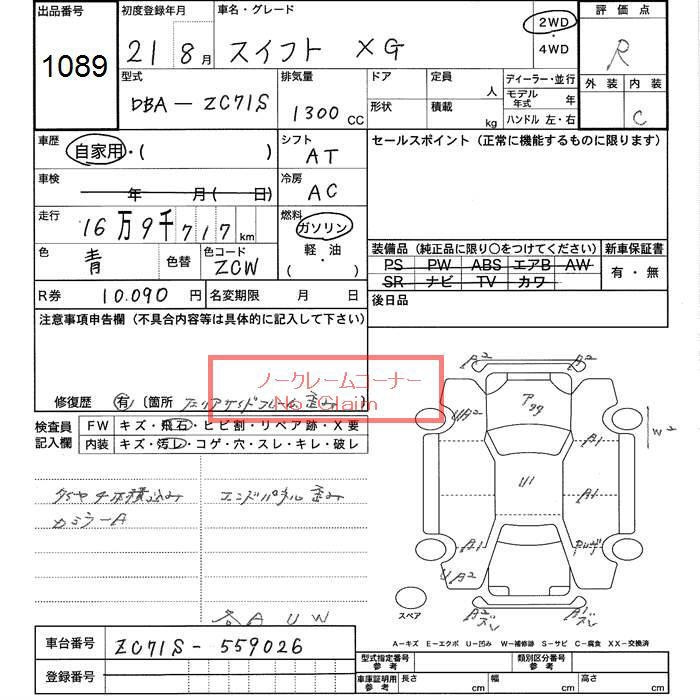 出品番号
1089
初度登録年月
21 8月
車名・グレード
スイフト XG
2WD
・
4WD
評価点
R
外装 内装
C
型式
DBA-ZC71S
排気量
1300 CC
ドア
形状
定員 人
積載 kg
ディーラー・並行
モデル年式 年
ハンドル 左・右
車歴
自家用・( )
シフト
AT
セールスポイント (正常に機能するものに限ります)
車検
年 月( 日)
冷房
AC
走行
16万9千717km
燃料
ガソリン
軽・油
( )
色
青
色替
色コード
ZCW
装備品 (純正品に限り○をつけてください)
PS PW ABS エアB AW
SR ナビ TV カワ
新車保証書
有・無
R券 10.090円
名変期限 月 日
後日品
注意事項申告欄 (不具合内容等は具体的に記入して下さい)
ノークレームコーナー
No Claim
修復歴 有 〔箇所
検査員
記入欄
FW キズ・飛石・ヒビ割・リペア跡・X要
内装 キズ・汚レ・コゲ・穴・スレ・キレ・破レ
エンドパネル歪み
カミラーA
各A UW
A2
A2
UA2
アタタ
A1
W2
U1
A1
A1
UA2
スペア
A2
A1
車台番号 ZC71S-559026
登録番号
A-キズ E-エクボ U-凹み W-補修跡 S-サビ C-腐食 XX-交換済
型式指定番号
参考
類別区分番号
参考
車庫証明用
参考
長さ cm
幅 cm
高さ cm